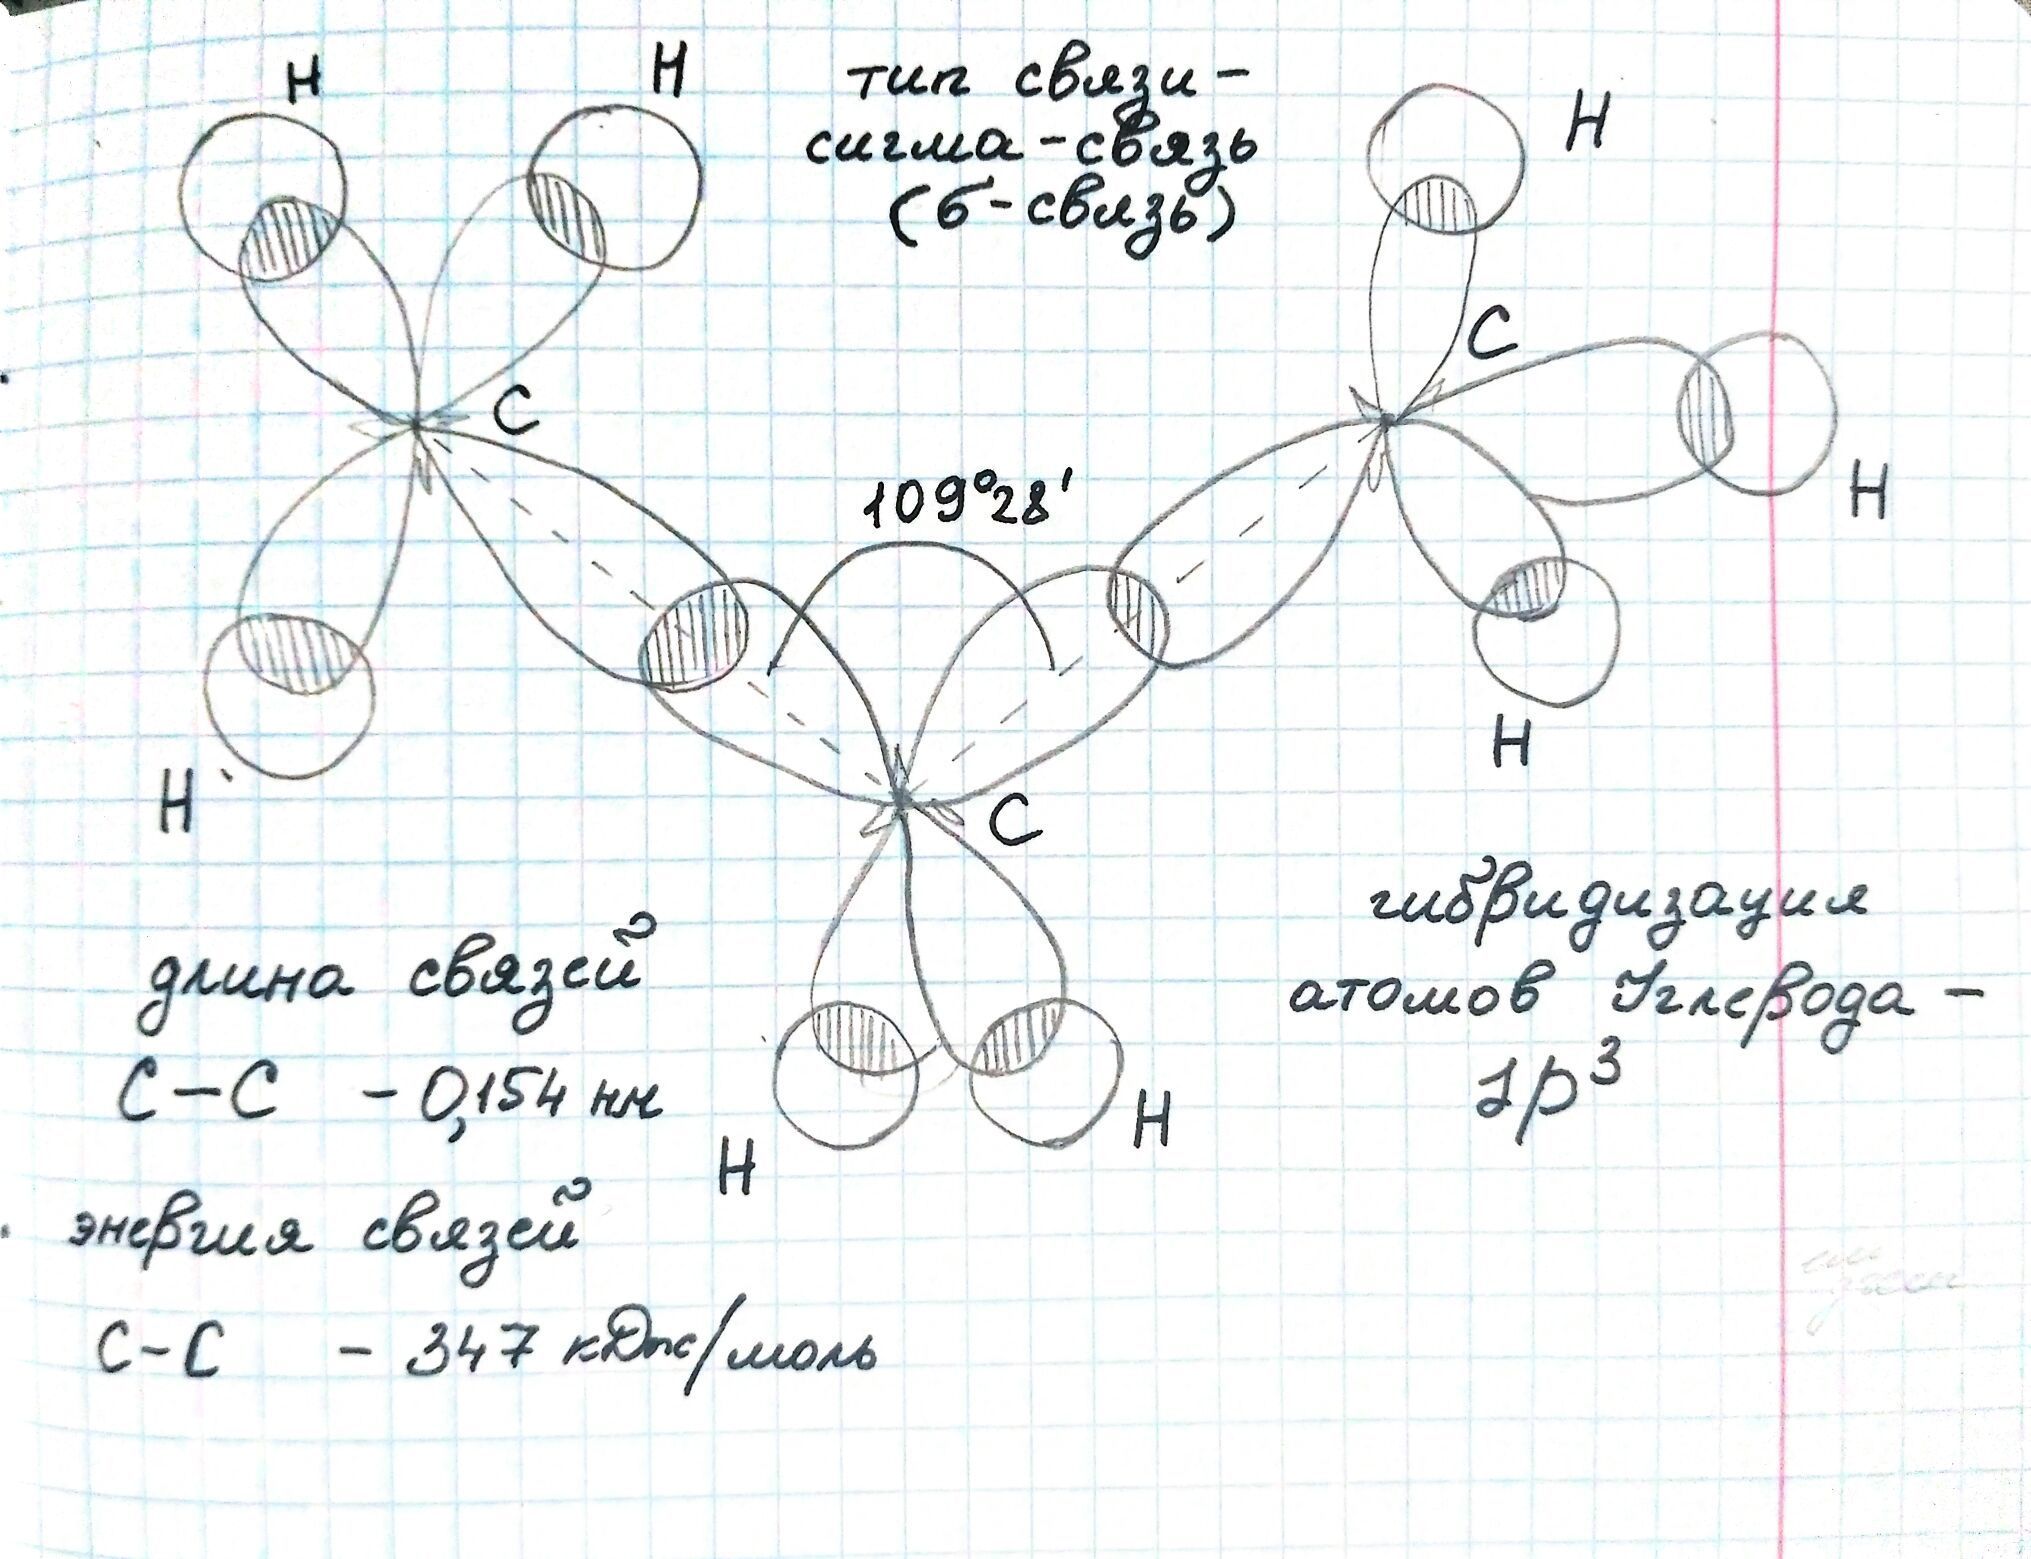 H
H
тип связи -
сигма - связь
(б - связь)
H
C
C
109°28'
H
H
H
C
гибридизация
атомов Углерода -
sp³
длина связей
C - C - 0,154 нм
H
H
энергия связей
C - C - 347 кДж/моль